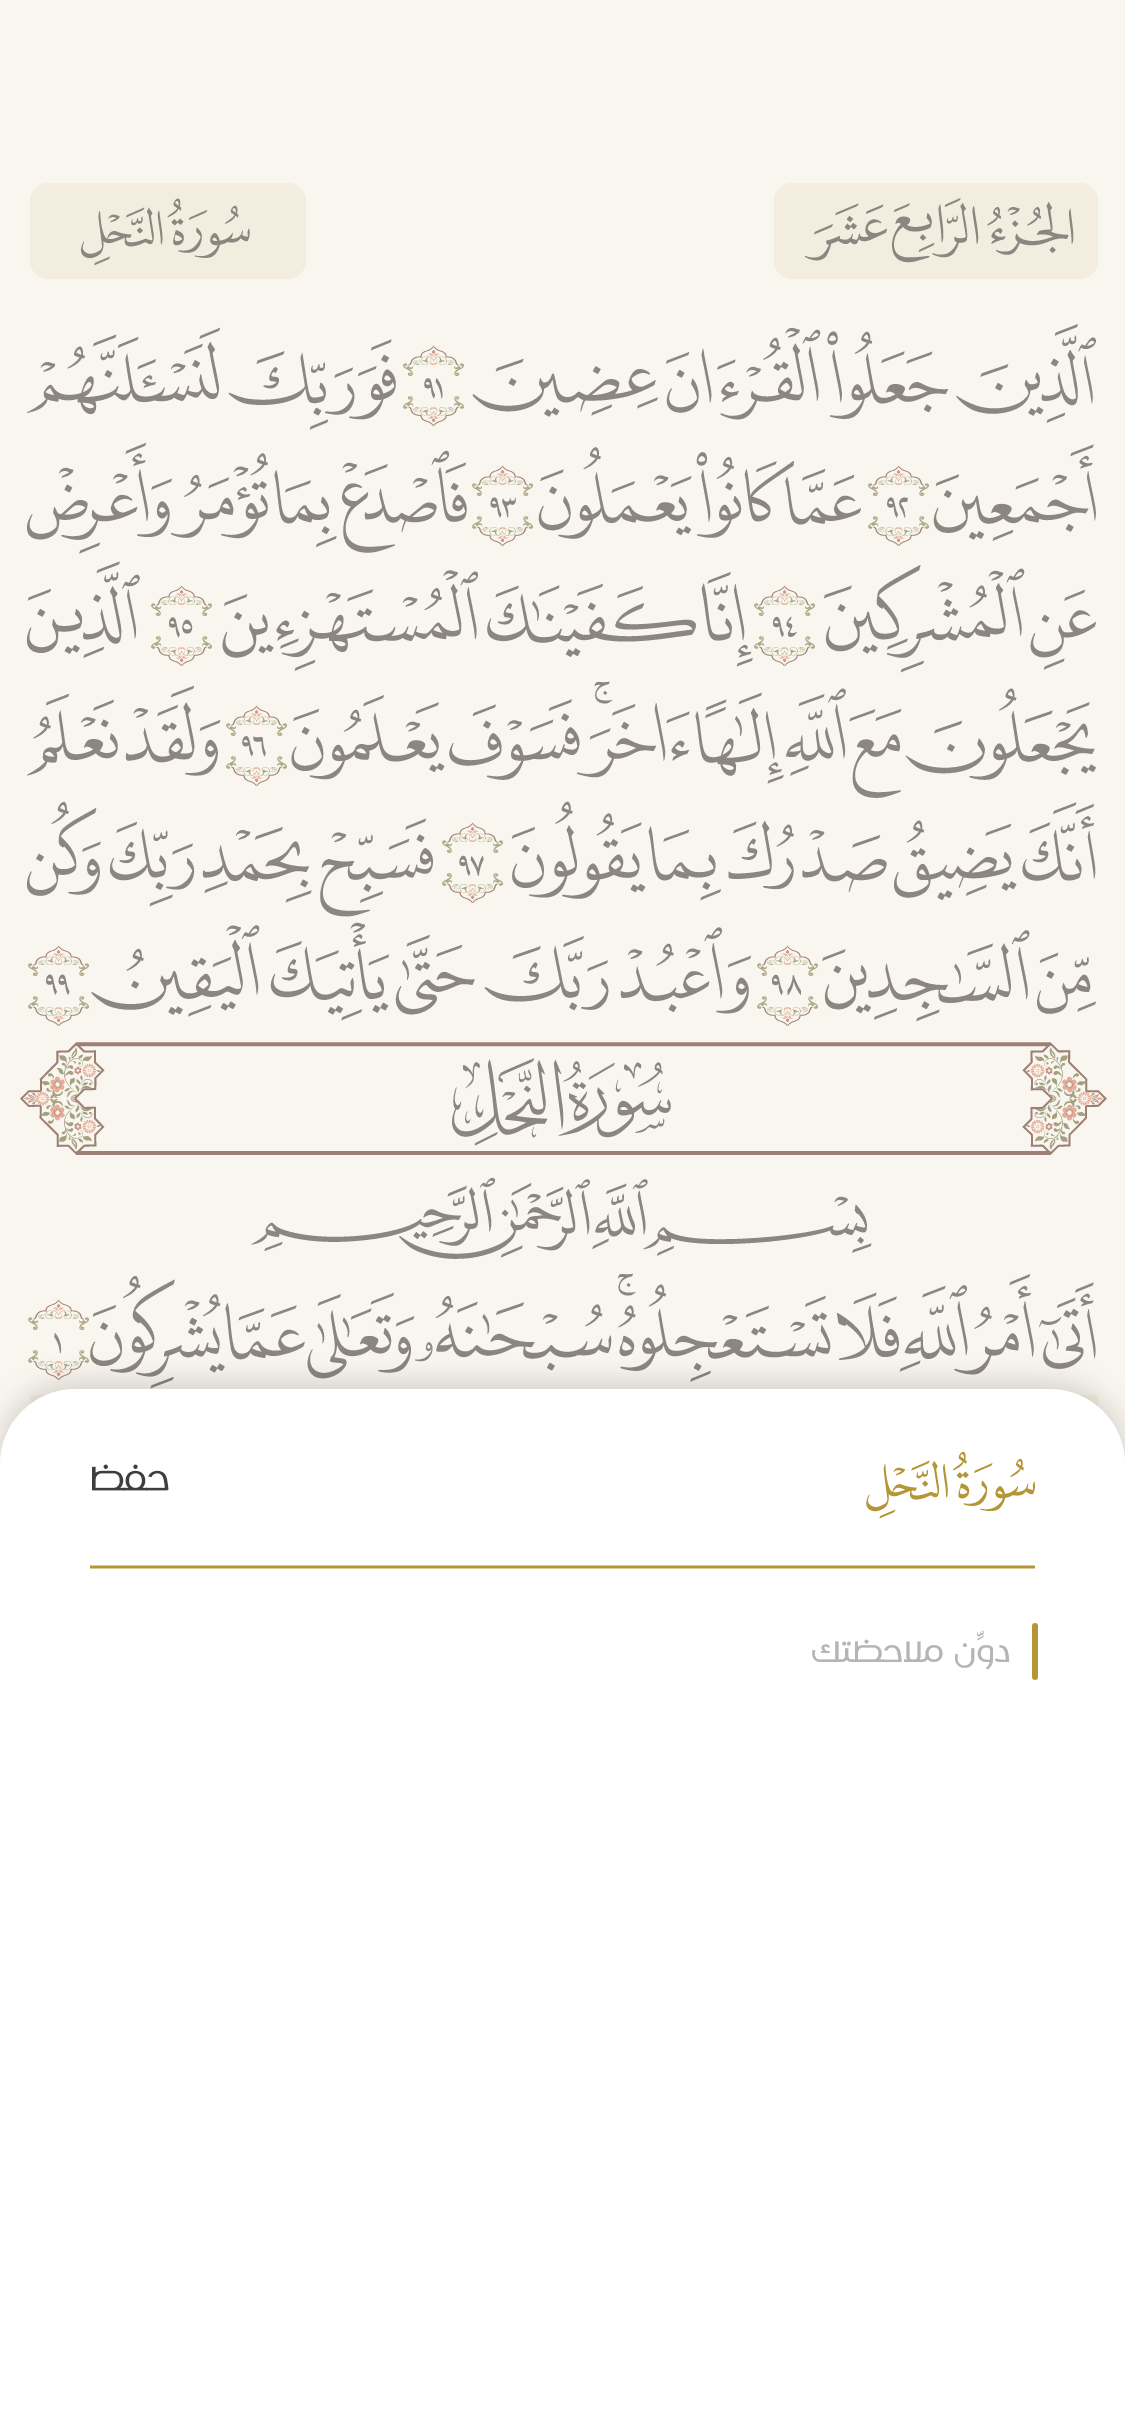 الجُزْءُ الرَّابِعَ عَشَرَ
سُورَةُ النَّحْلِ
ٱلَّذِينَ جَعَلُوا۟ ٱلْقُرْءَانَ عِضِينَ ٩١ فَوَرَبِّكَ لَنَسْـَٔلَنَّهُمْ
أَجْمَعِينَ ٩٢ عَمَّا كَانُوا۟ يَعْمَلُونَ ٩٣ فَٱصْدَعْ بِمَا تُؤْمَرُ وَأَعْرِضْ
عَنِ ٱلْمُشْرِكِينَ ٩٤ إِنَّا كَفَيْنَـٰكَ ٱلْمُسْتَهْزِءِينَ ٩٥ ٱلَّذِينَ
يَجْعَلُونَ مَعَ ٱللَّهِ إِلَـٰهًا ءَاخَرَ ۚ فَسَوْفَ يَعْلَمُونَ ٩٦ وَلَقَدْ نَعْلَمُ
أَنَّكَ يَضِيقُ صَدْرُكَ بِمَا يَقُولُونَ ٩٧ فَسَبِّحْ بِحَمْدِ رَبِّكَ وَكُن
مِّنَ ٱلسَّـٰجِدِينَ ٩٨ وَٱعْبُدْ رَبَّكَ حَتَّىٰ يَأْتِيَكَ ٱلْيَقِينُ ٩٩
سُورَةُ النَّحْلِ
بِسْمِ ٱللَّهِ ٱلرَّحْمَـٰنِ ٱلرَّحِيمِ
أَتَىٰٓ أَمْرُ ٱللَّهِ فَلَا تَسْتَعْجِلُوهُ ۚ سُبْحَـٰنَهُۥ وَتَعَـٰلَىٰ عَمَّا يُشْرِكُونَ ١
سُورَةُ النَّحْلِ
حفظ
دوِّن ملاحظتك